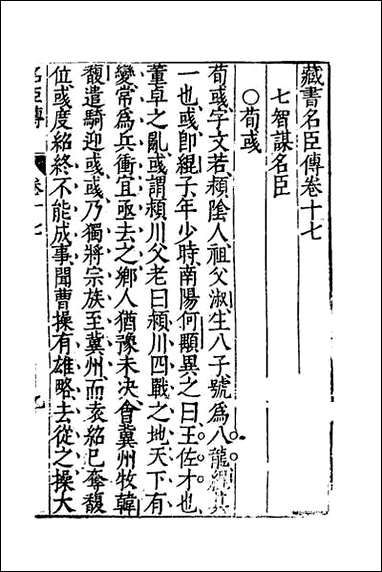 藏書名臣傳卷十七
七智謀名臣
○荀彧
荀彧字文若潁陰人祖父淑生八子號爲八龍緄其
一也彧即緄子年少時南陽何顒異之曰王佐才也
董卓之亂彧謂潁川父老曰潁川四戰之地天下有
變常爲兵衝宜亟去之鄉人猶豫未决會冀州牧韓
馥遣騎迎彧彧乃獨將宗族至冀州而袁紹已奪馥
位彧度紹終不能成事聞曹操有雄略去從之操大
名臣傳 卷十七